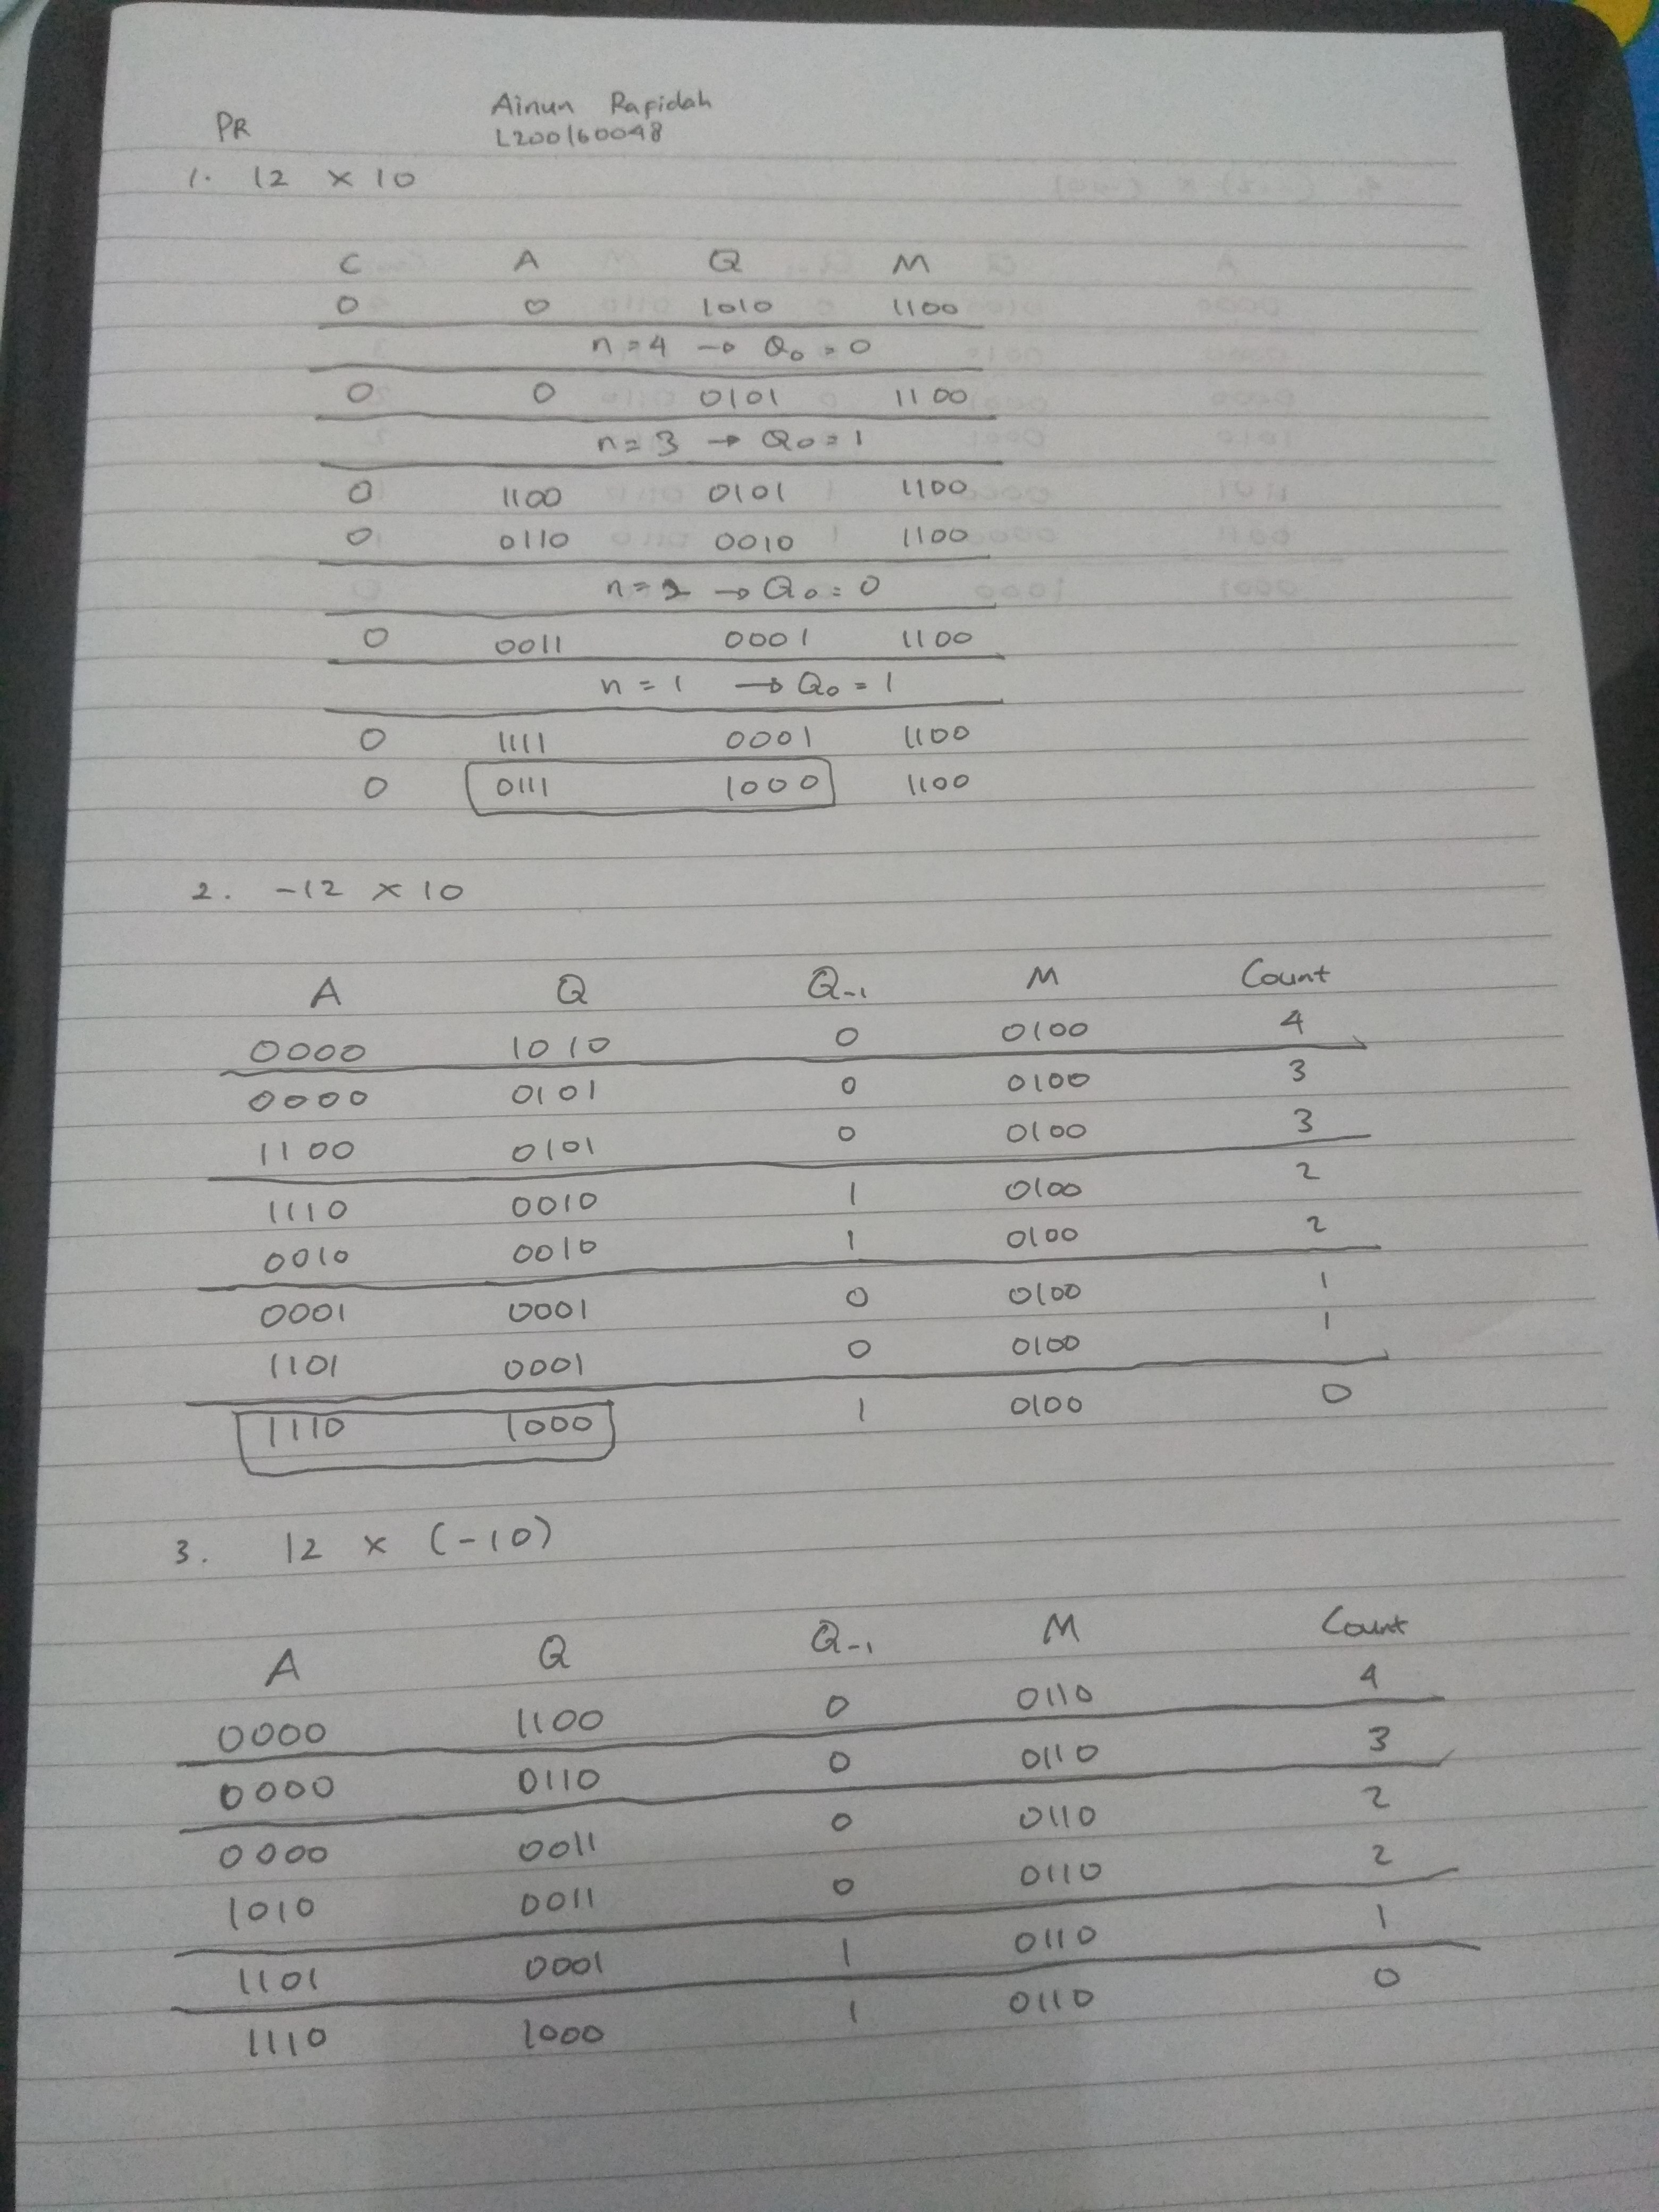 Ainun Rafidah
PR L200160048
1. 12 x 10
C A Q M
0 0 1010 1100
n=4 → Q0=0
0 0 0101 1100
n=3 → Q0=1
0 1100 0101 1100
0 0110 0010 1100
n=2 → Q0=0
0 0011 0001 1100
n=1 → Q0=1
0 1111 0001 1100
0 0111 1000 1100
2. -12 x 10
A Q Q-1 M Count
0000 1010 0 0100 4
0000 0101 0 0100 3
1100 0101 0 0100 3
1110 0010 1 0100 2
0010 0010 1 0100 2
0001 0001 0 0100 1
1101 0001 0 0100 1
1110 1000 1 0100 0
3. 12 x (-10)
A Q Q-1 M Count
0000 1100 0 0110 4
0000 0110 0 0110 3
0000 0011 0 0110 2
1010 0011 0 0110 2
1101 0001 1 0110 1
1110 1000 1 0110 0